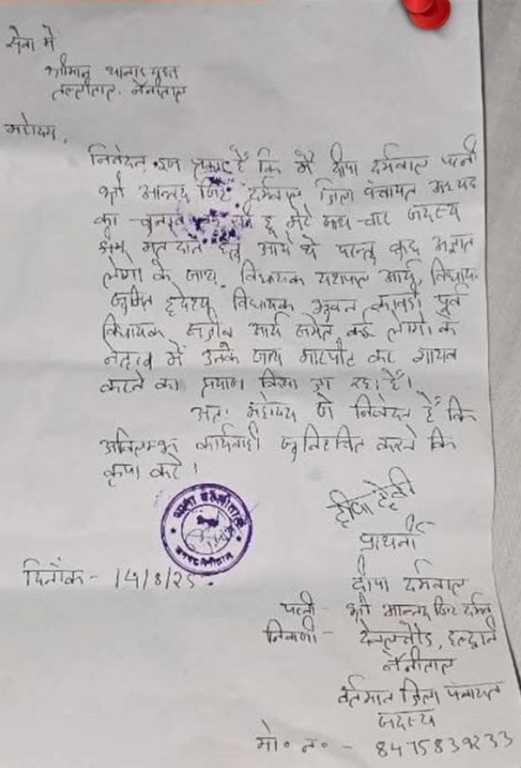 सेवा में
श्रीमान थानाध्यक्ष
तल्लीताल, नैनीताल
महोदय,
निवेदन इस प्रकार है कि मैं दीपा दर्मवाल पत्नी
श्री आनन्द सिंह दर्मवाल जिला पंचायत अध्यक्ष
का चुनाव लड़ रही हूं मेरे साथ चार सदस्य
मतदान हेतु आये थे परन्तु कुछ अज्ञात
लोगों के साथ विधायक यशपाल आर्य, विधायक
सुमित हृदयेश, विधायक भुवन कापड़ी पूर्व
विधायक संजीव आर्य समेत कई लोगों के
नेतृत्व में उनके साथ मारपीट कर गायब
करने का प्रयास किया जा रहा है।
अतः महोदय से निवेदन है कि
अविलम्ब कार्यवाही सुनिश्चित करने कि
कृपा करें।
थाना तल्लीताल
जनपद नैनीताल
प्रार्थनी
दिनांक - 14/8/25
दीपा दर्मवाल
पत्नी - श्री आनन्द सिंह दर्मवाल
निवासी - देवलचौड़, हल्द्वानी
नैनीताल
वर्तमान जिला पंचायत
सदस्य
मो० न० - 8475839233